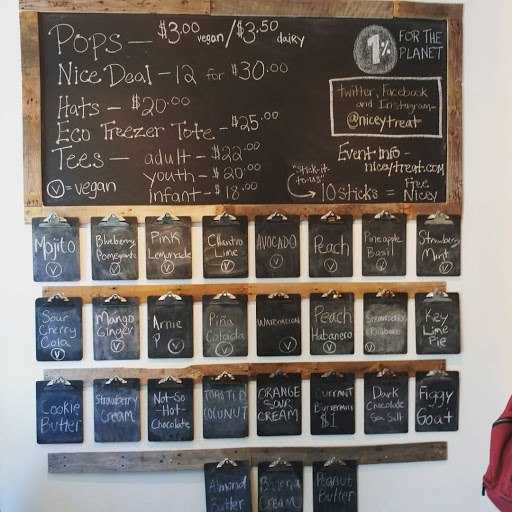 Pops — $3.00 vegan / $3.50 dairy
Nice Deal - 12 for $30.00
Hats - $20.00
Eco Freezer Tote - $25.00
Tees — adult - $22.00
youth - $20.00
infant - $18.00
V = vegan
1% FOR THE PLANET
Twitter, Facebook
and Instagram -
@niceytreat
Event info -
niceytreat.com
"stick-it
to-us"
10 sticks = Free
Nicey
Mojito
V
Blueberry
Pomegranate
V
Pink
Lemonade
V
Cilantro
Lime
V
AVOCADO
V
Peach
V
Pineapple
Basil
V
Strawberry
Mint
V
Sour
Cherry
Cola
V
Mango
Ginger
V
Arnie
P
V
Piña
Colada
V
WATERMELON
V
Peach
Habanero
V
Strawberry
Rhubarb
V
Key
Lime
Pie
Cookie
Butter
Strawberry
Cream
Not-So
-Hot-
Chocolate
TOASTED
COCONUT
ORANGE
SOUR
CREAM
CURRANT
Buttermilk
$1
Dark
Chocolate
Sea Salt
Figgy
Goat
Almond
Butter
Banana
Cream
Peanut
Butter